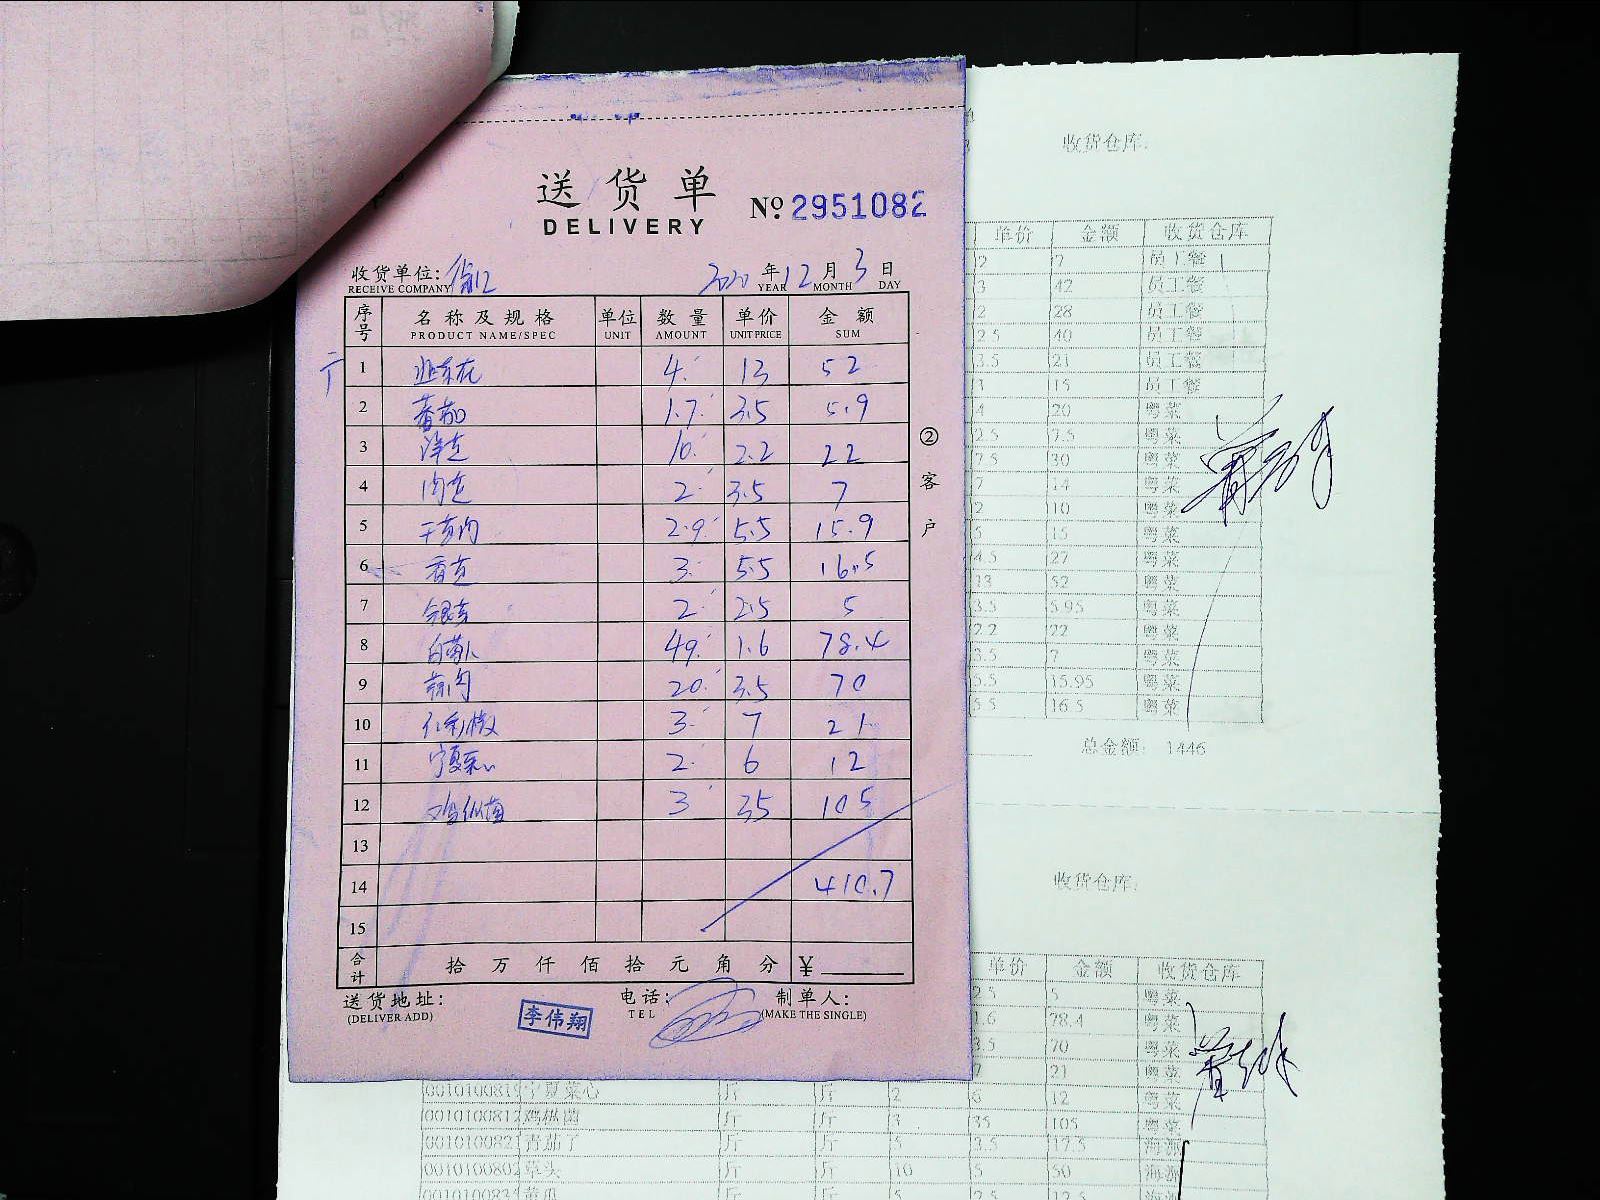 送货单
DELIVERY
№ 2951082
收货单位:
RECEIVE COMPANY
2020 年 12 月 3 日
YEAR MONTH DAY
序号 名称及规格 单位 数量 单价 金额
PRODUCT NAME/SPEC UNIT AMOUNT UNIT PRICE SUM
1 韭菜花 4 13 52
2 番茄 1.7 3.5 5.9
3 洋芝 10 2.2 22
4 2 3.5 7
5 2.9 5.5 15.9
6 香芝 3 5.5 16.5
7 银芽 2 2.5 5
8 白萝卜 49 1.6 78.4
9 20 3.5 70
10 3 7 21
11 宁夏菜心 2 6 12
12 鸡枞菌 3 35 105
13
14 410.7
15
合计 拾 万 仟 佰 拾 元 角 分 ¥
送货地址: 电话: 制单人:
(DELIVER ADD) TEL (MAKE THE SINGLE)
李伟翔
②客户
收货仓库:
单价 金额 收货仓库
2 7 员工餐
3 42 员工餐
2 28 员工餐
2.5 40 员工餐
3.5 21 员工餐
15 员工餐
4 20 粤菜
2.5 7.5 粤菜
7.5 30 粤菜
7 14 粤菜
2 10 粤菜
5 15 粤菜
4.5 27 粤菜
13 52 粤菜
3.5 5.95 粤菜
2.2 22 粤菜
3.5 7 粤菜
5.5 15.95 粤菜
5.5 16.5 粤菜
总金额: 1446
收货仓库:
单价 金额 收货仓库
2.5 5 粤菜
1.6 78.4 粤菜
3.5 70 粤菜
7 21 粤菜
宁夏菜心 斤 斤 2 6 12 粤菜
鸡枞菌 斤 斤 3 35 105 粤菜
青茄子 斤 斤 5 3.5 17.5 海源
草头 斤 斤 10 5 50 海源
黄瓜 斤 斤 5 2.5 12.5